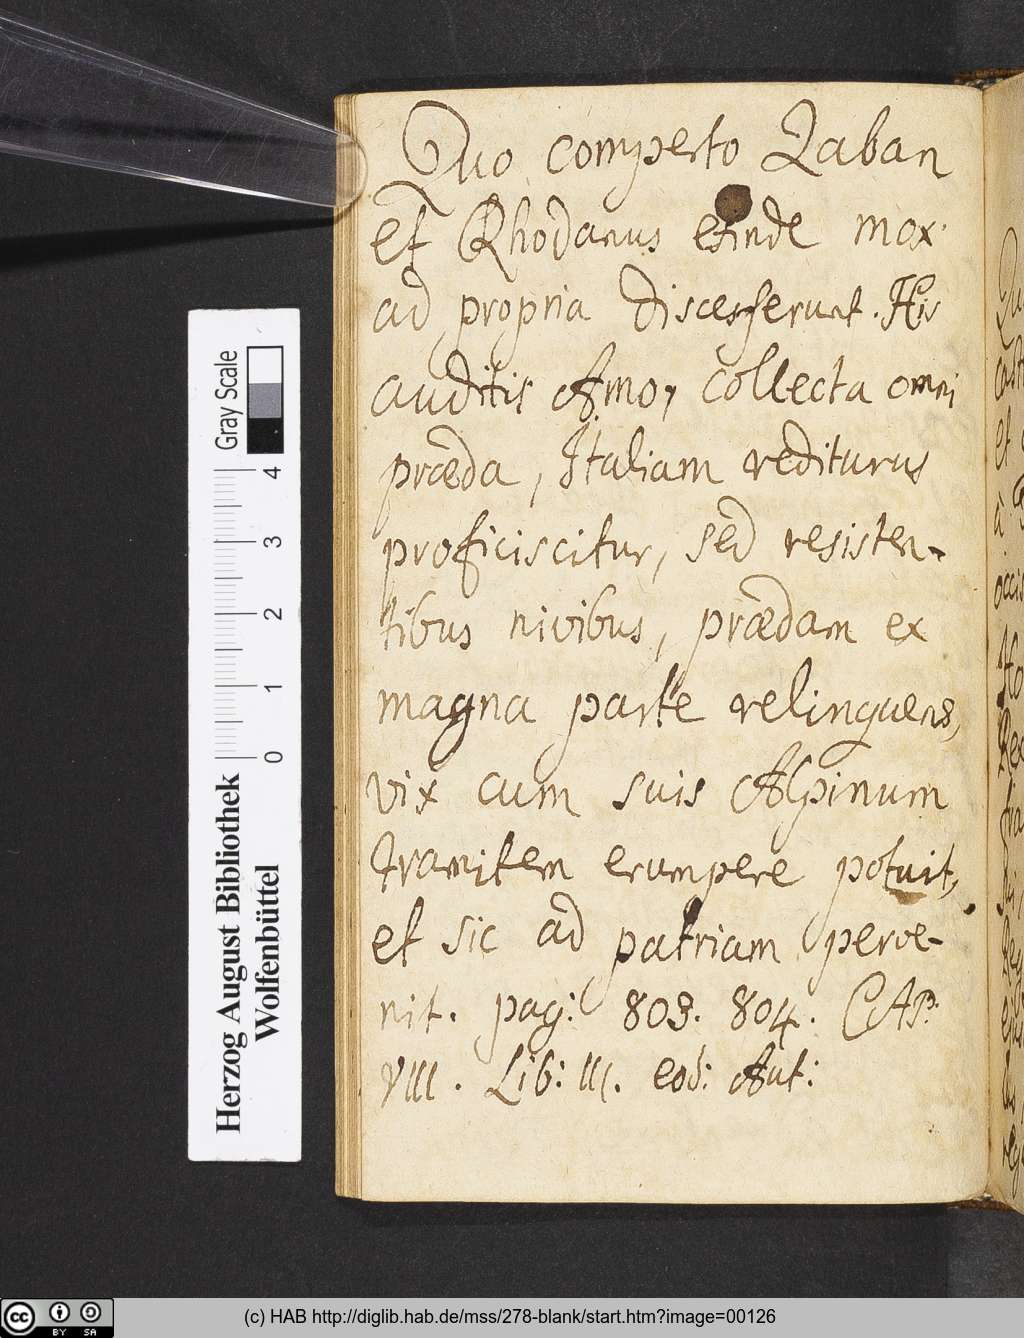 Quo comperto Zaban
et Rhodanus exinde mox
ad propria discesserunt. His
auditis Amo, collecta omni
præda, Italiam rediturus
proficiscitur, sed resisten-
tibus nivibus, prædam ex
magna parte relinquens,
vix cum suis Alpinum
tramitem erumpere potuit,
et sic ad patriam perve-
nit. pag: 803. 804. CAP.
VIII. Lib: III. eod: Aut:
Gray Scale
0 1 2 3 4
Herzog August Bibliothek
Wolfenbüttel
cc BY SA
(c) HAB http://diglib.hab.de/mss/278-blank/start.htm?image=00126